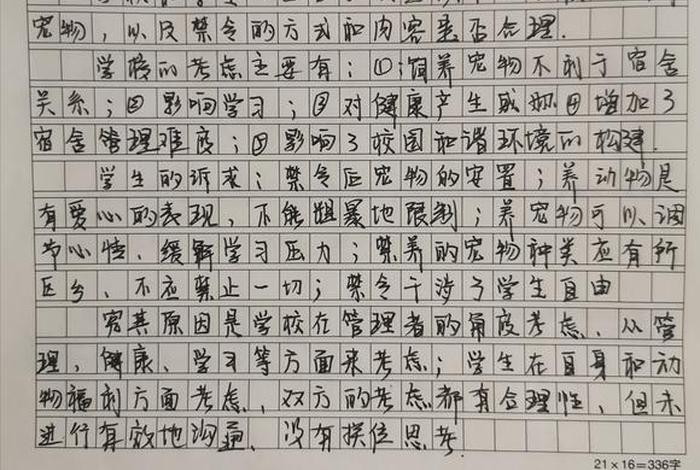 宠物，以及禁令的方式和内容是否合理.
学校的考虑主要有：①饲养宠物不利于宿舍
关系；②影响学习；③对健康产生威胁④增加了
宿舍管理难度；⑤影响了校园和谐环境的构建.
学生的诉求：禁令后宠物的安置；养动物是
有爱心的表现，不能粗暴地限制；养宠物可以调
节心情、缓解学习压力；禁养的宠物种类应有所
区分，不应禁止一切；禁令干涉了学生自由
究其原因是学校在管理者的角度考虑、从管
理、健康、学习等方面来考虑；学生在自身和动
物福利方面考虑、双方的考虑都有合理性，但未
进行有效地沟通、没有换位思考.
21×16=336字